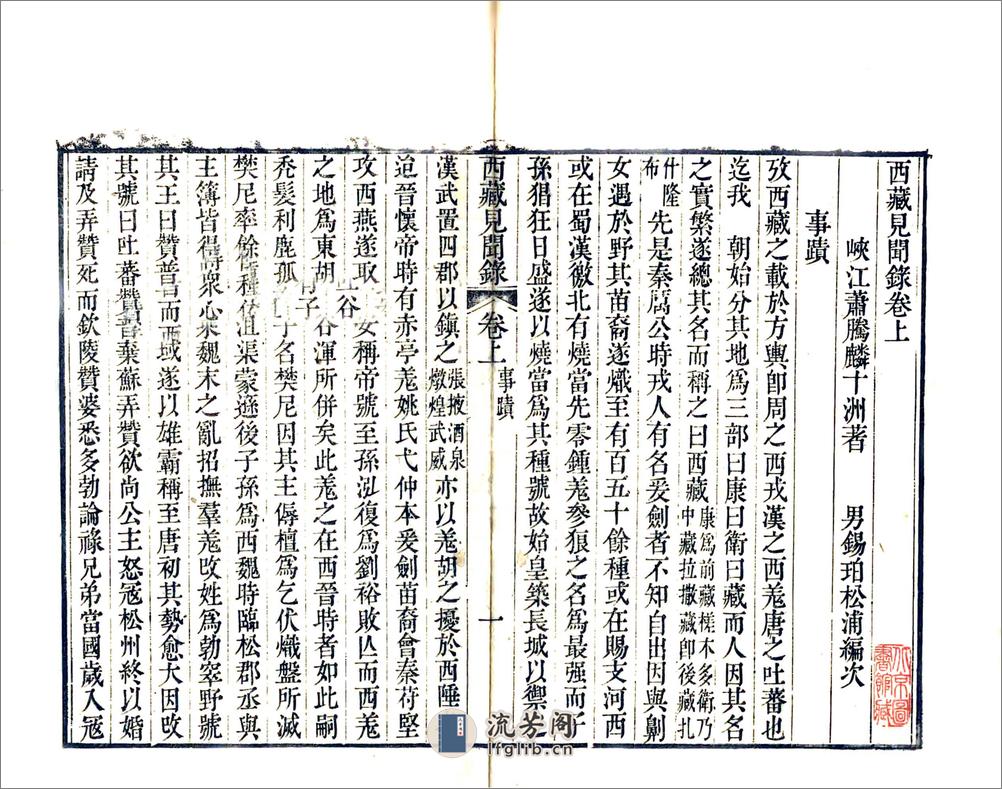 西藏見聞錄卷上
峽江蕭騰麟十洲著 男錫珀松浦編次
事蹟
攷西藏之載於方輿卽周之西戎漢之西羗唐之吐蕃也
迄我 朝始分其地爲三部曰康曰衛曰藏而人因其名
之實繁遂總其名而稱之曰西藏康爲前藏槎木多衛乃中藏拉撒藏卽後藏扎
什隆布 先是秦厲公時戎人有名爰劍者不知自出因與劓
女遇於野其苗裔遂熾至有百五十餘種或在賜支河西
或在蜀漢徼北有燒當先零鍾羗參狼之名爲最强而子
孫猖狂日盛遂以燒當爲其種號故始皇築長城以禦之
西藏見聞錄 卷上 事蹟 一
漢武置四郡以鎭之張掖酒泉燉煌武威亦以羗胡之擾於西陲
迨晉懷帝時有赤亭羗姚氏弋仲本爰劍苗裔會秦苻堅
攻西燕遂取 安稱帝號至孫泓復爲劉裕敗亾而西羗
之地爲東胡 谷渾所併矣此羗之在西晉時者如此嗣
禿髮利鹿孤 子名樊尼因其主傉檀爲乞伏熾盤所滅
樊尼率餘 種依沮渠蒙遜後子孫爲西魏時臨松郡丞與
主簿皆得衆心來魏末之亂招撫羣羗攺姓爲勃窣野號
其王曰贊普 而西域遂以雄霸稱至唐初其勢愈大因攺
其號曰吐蕃贊普棄蘇弄贊欲尚公主怒寇松州終以婚
請及弄贊死而欽陵贊婆悉多勃論祿兄弟當國歲入寇
北京圖書館藏
流芳阁
lfglib.cn